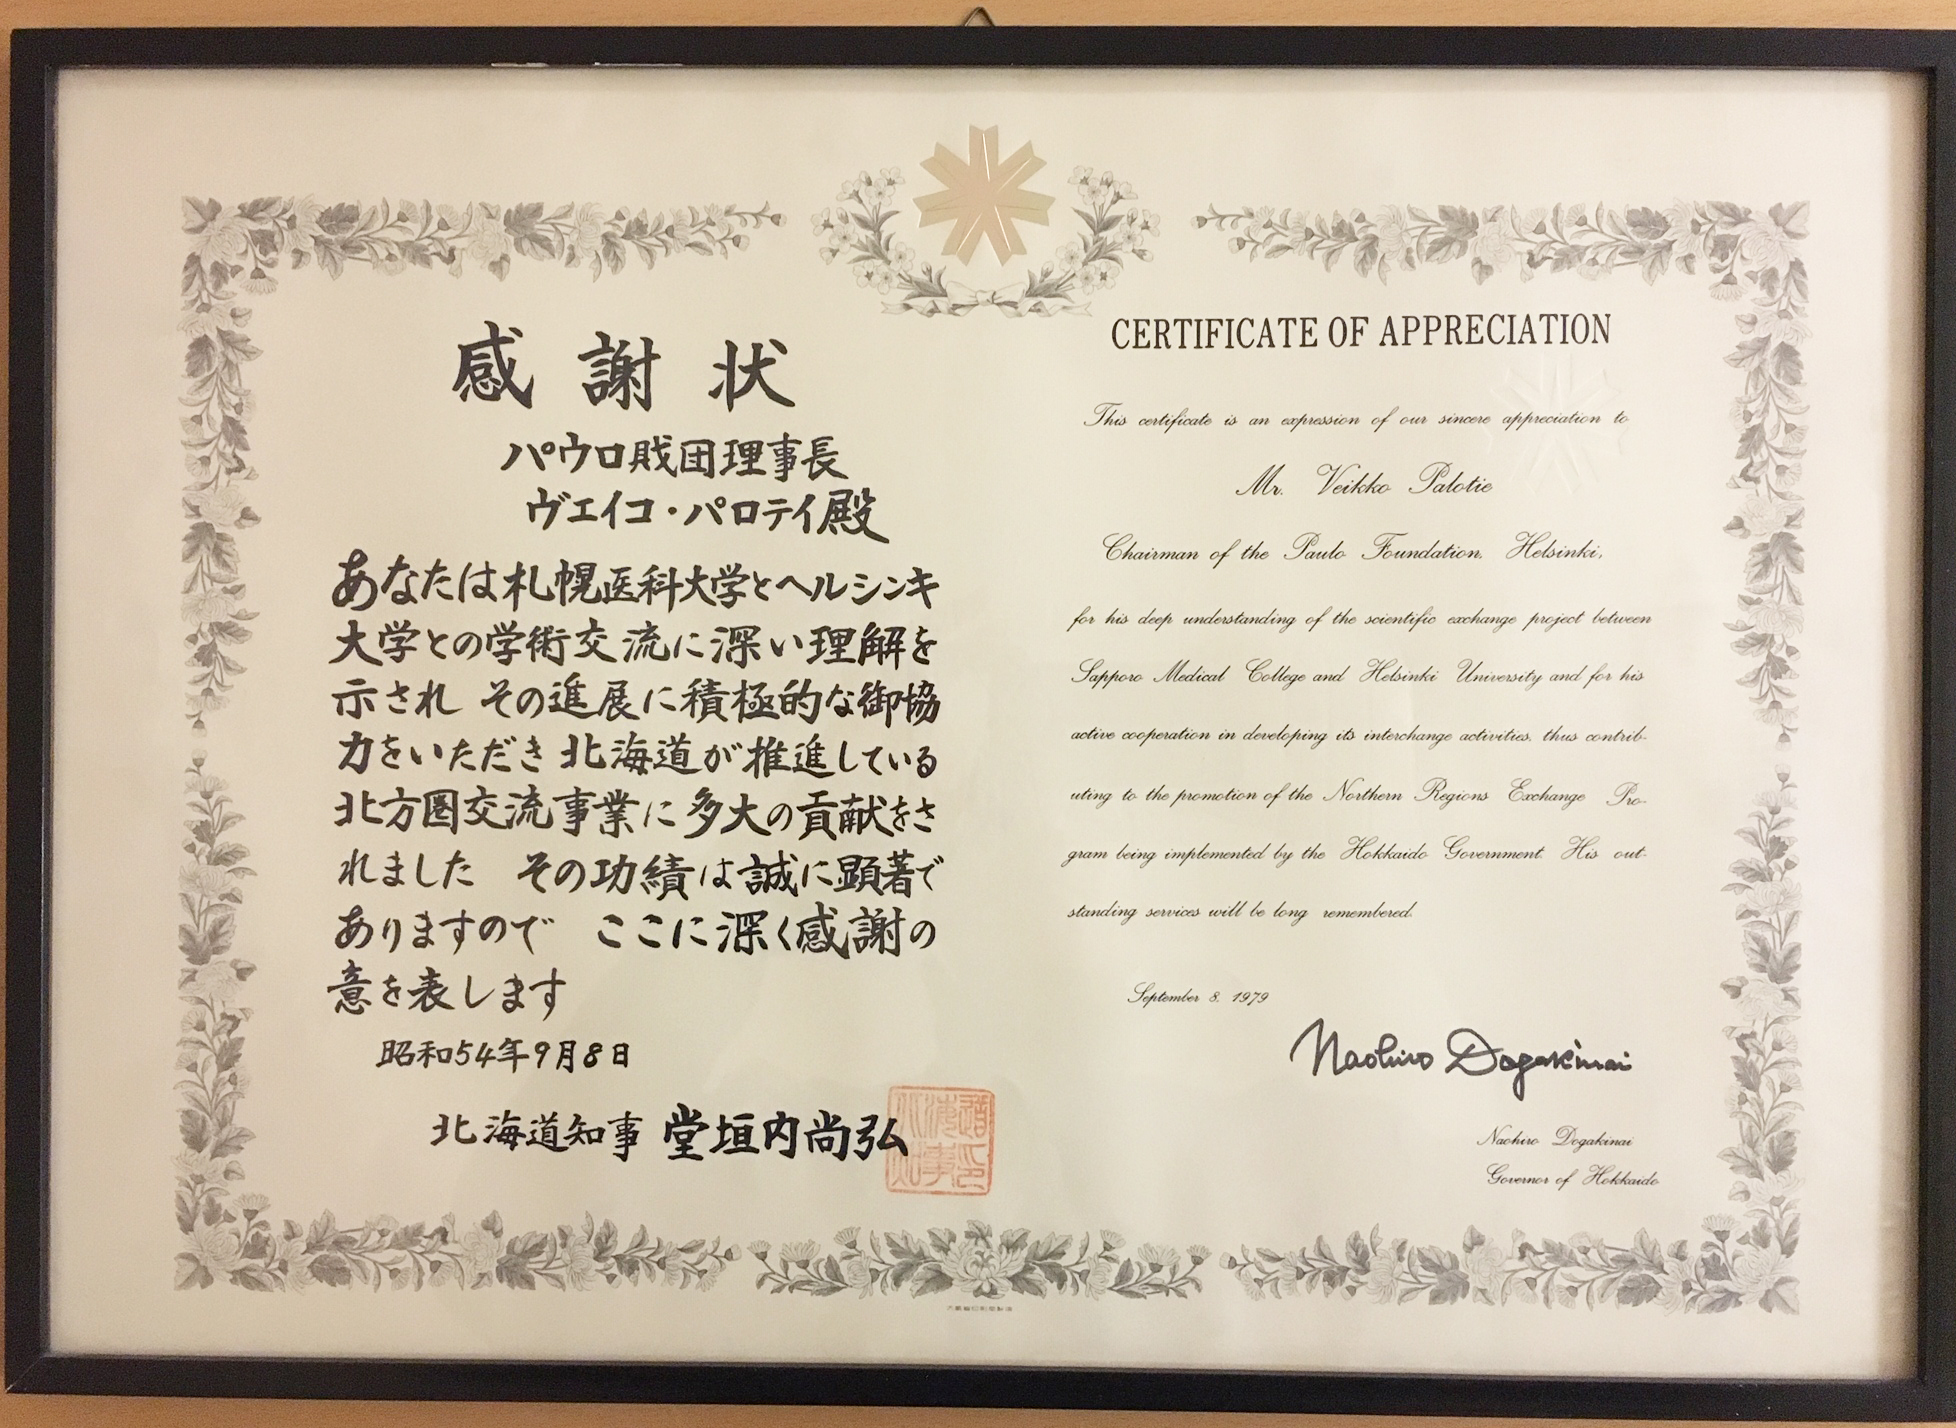 感謝状
パウロ財団理事長
ヴェイコ・パロテイ殿
あなたは札幌医科大学とヘルシンキ
大学との学術交流に深い理解を
示され その進展に積極的な御協
力をいただき 北海道が推進している
北方圏交流事業に多大の貢献をさ
れました その功績は誠に顕著で
ありますので ここに深く感謝の
意を表します
昭和54年9月8日
北海道知事 堂垣内尚弘
CERTIFICATE OF APPRECIATION
This certificate is an expression of our sincere appreciation to
Mr. Veikko Palotie
Chairman of the Paulo Foundation, Helsinki,
for his deep understanding of the scientific exchange project between
Sapporo Medical College and Helsinki University and for his
active cooperation in developing its interchange activities, thus contrib-
uting to the promotion of the Northern Regions Exchange Pro-
gram being implemented by the Hokkaido Government. His out-
standing services will be long remembered.
September 8, 1979
Naohiro Dogakinai
Naohiro Dogakinai
Governor of Hokkaido